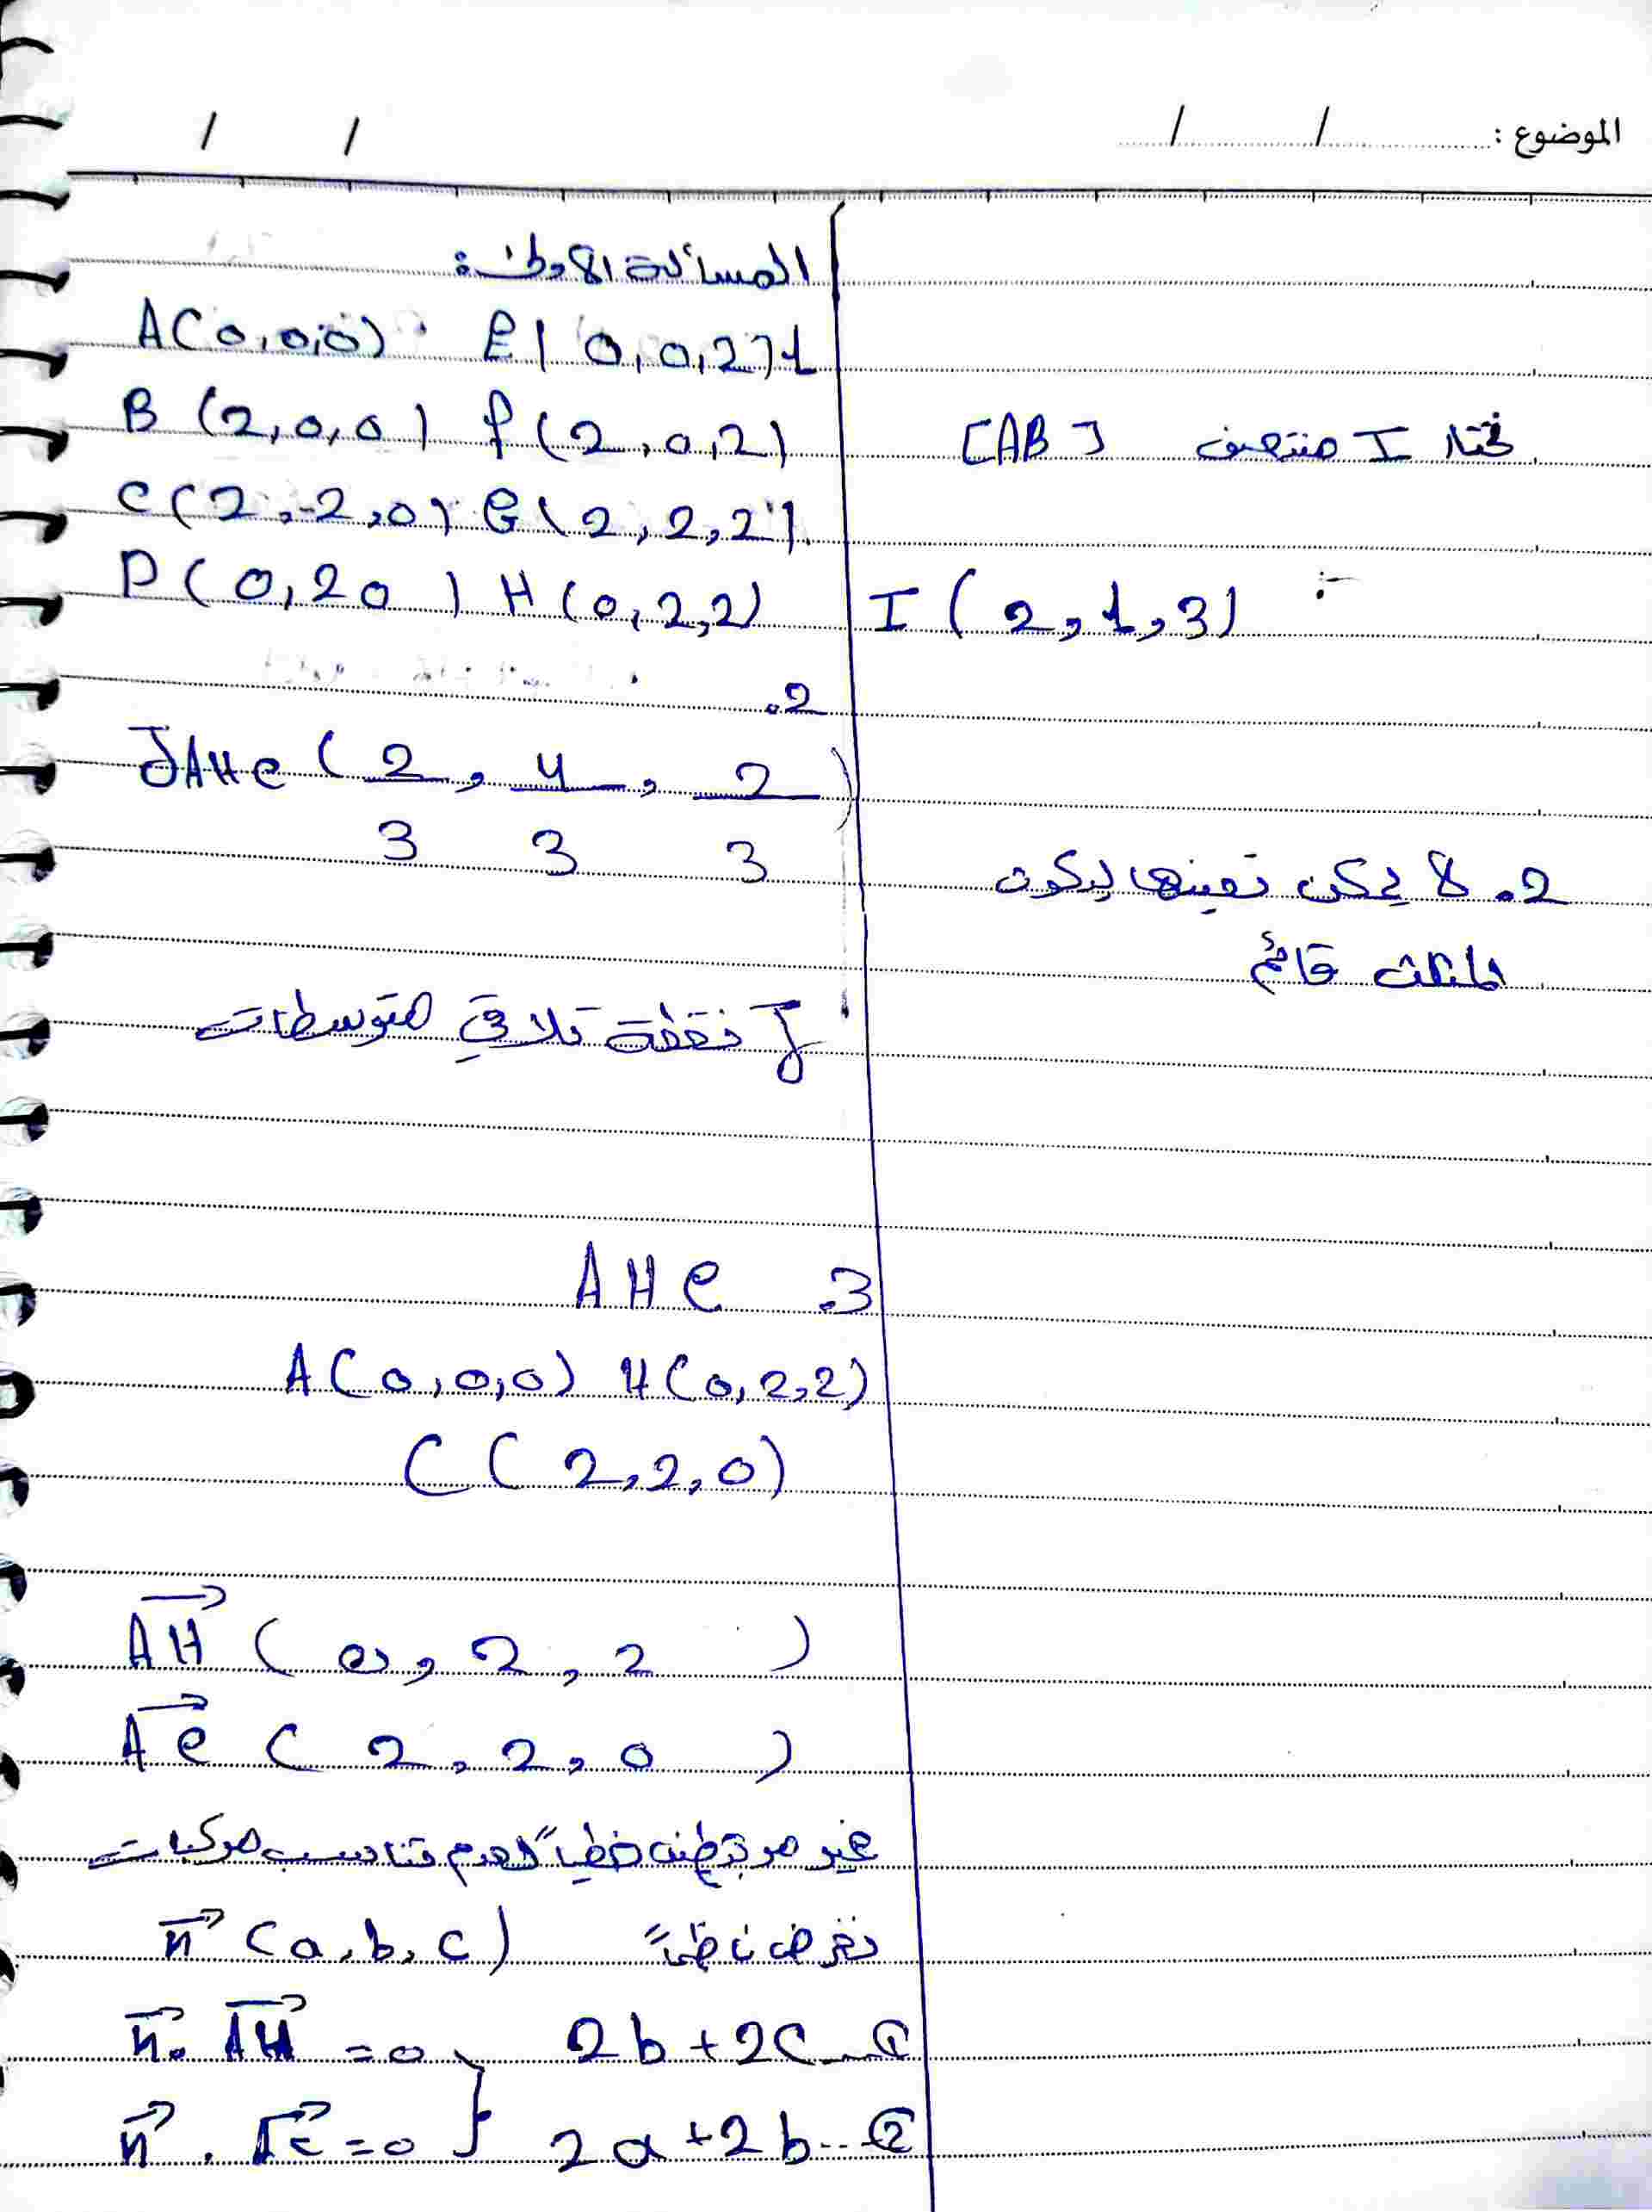 الموضوع : / /
/ /
المسألة الأولى:
A(0,0,0) E(0,0,2)
B(2,0,0) f(2,0,2)
C(2,-2,0) G(2,2,2)
D(0,20) H(0,2,2)
2.
JAHC (2/3, 4/3, 2/3)
J نقطة تلاقي متوسطات
3. AHC
A(0,0,0) H(0,2,2)
C(2,2,0)
AH (0,2,2)
AC (2,2,0)
غير مرتبطين خطياً لعدم تناسب مركبات
نفرض ناظماً n (a,b,c)
n. AH =0 } 2b+2c...①
n. AC =0 } 2a+2b...②
I منتصف [AB]
I (2,1,3)
2. لا يمكن تعينها ليكون
المثلث قائم